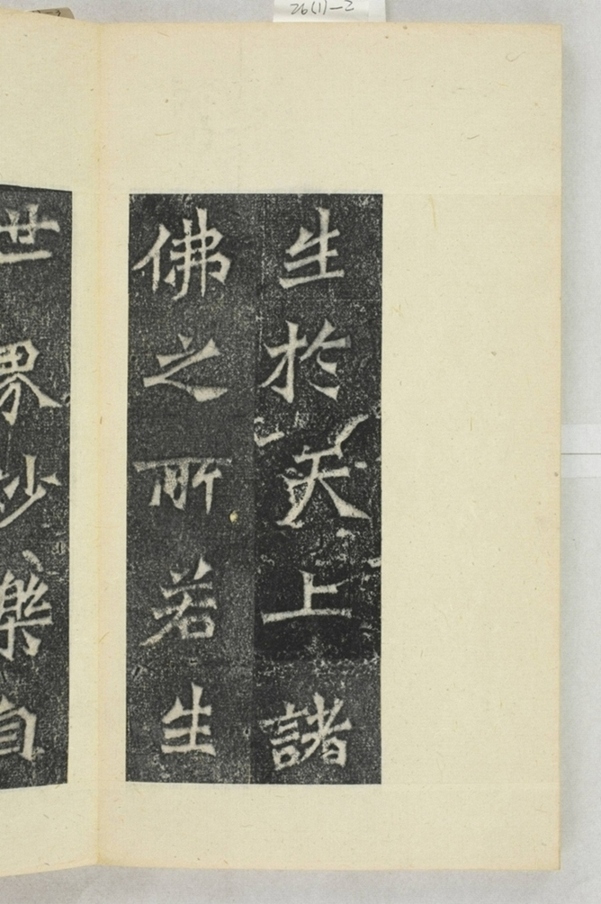 生於天上諸
佛之所若生
世界妙樂自
26(1)-2